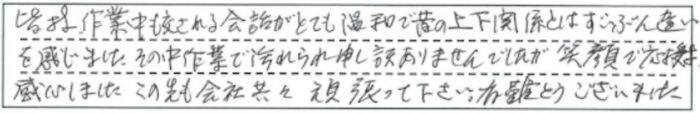 皆様作業中交される会話がとても温和で昔の上下関係とはずいぶん違い
を感じました その中作業で汚れられ申し訳ありませんでしたが 笑顔で応接
感心しました この先も会社共々 頑張って下さい。有難とうございました